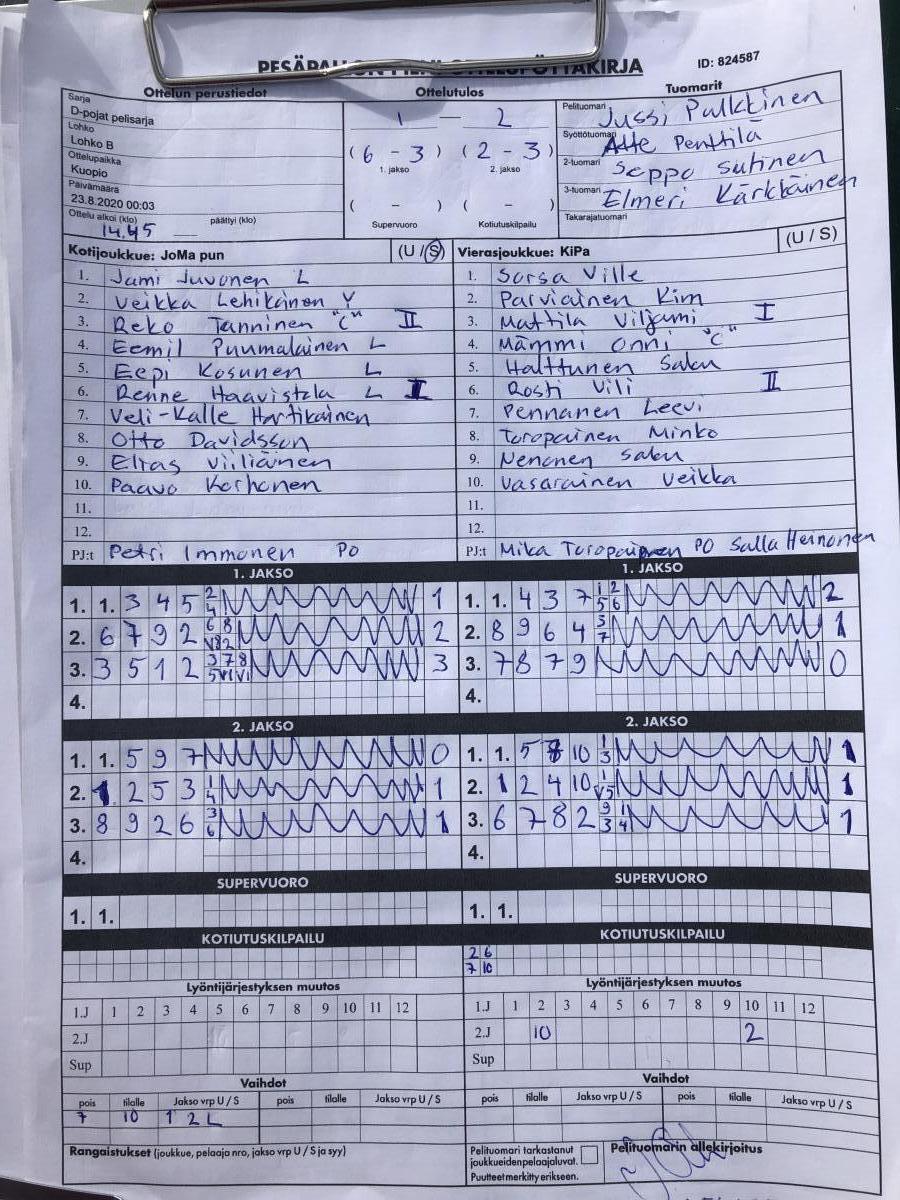 PESÄPALLON PIENI OTTELUPÖYTÄKIRJA ID: 824587
Ottelun perustiedot Ottelutulos Tuomarit
Sarja
D-pojat pelisarja
Lohko
Lohko B
Ottelupaikka
Kuopio
Päivämäärä
23.8.2020 00:03
Ottelu alkoi (klo) 14.45 päättyi (klo)
1 — 2
(6 - 3) (2 - 3)
1. jakso 2. jakso
( - ) ( - )
Supervuoro Kotiutuskilpailu
Pelituomari Jussi Pulkkinen
Syöttötuomari Atte Penttilä
2-tuomari Seppo Sutinen
3-tuomari Elmeri Kärkkäinen
Takarajatuomari
Kotijoukkue: JoMa pun (U / S)
1. Jami Juvonen L
2. Veikka Lehikoinen Y
3. Reko Tanninen "C" II
4. Eemil Puumalainen L
5. Eepi Kosunen L
6. Renne Haavistola L I
7. Veli-Kalle Hartikainen
8. Otto Davidsson
9. Eltas Viiliäinen
10. Paavo Korhonen
11.
12.
PJ:t Petri Immonen PO
Vierasjoukkue: KiPa (U / S)
1. Sorsa Ville
2. Parviainen Kim
3. Mattila Viljami I
4. Mämmi Onni "C"
5. Halttunen Saku
6. Rosti Vili II
7. Pennanen Leevi
8. Toropainen Minko
9. Nenonen Saku
10. Vasarainen Veikka
11.
12.
PJ:t Mika Toropainen PO Salla Heinonen
1. JAKSO
1. 1. 3 4 5 2 4 1
2. 6 7 9 2 6 8 2
3. 3 5 1 2 3 7 8 3
4.
1. JAKSO
1. 1. 4 3 7 1 2 5 6 2
2. 8 9 6 4 5 7 1
3. 7 8 7 9 0
4.
2. JAKSO
1. 1. 5 9 7 0
2. 1 2 5 3 1 4 1
3. 8 9 2 6 3 6 1
4.
2. JAKSO
1. 1. 5 7 8 10 1 3 1
2. 1 2 4 10 1 V5 1
3. 6 7 8 2 9 1 3 4 1
4.
SUPERVUORO
1. 1.
SUPERVUORO
1. 1.
KOTIUTUSKILPAILU
KOTIUTUSKILPAILU
2 6
7 10
Lyöntijärjestyksen muutos
1.J 1 2 3 4 5 6 7 8 9 10 11 12
2.J
Sup
Lyöntijärjestyksen muutos
1.J 1 2 3 4 5 6 7 8 9 10 11 12
2.J 10 2
Sup
Vaihdot
pois tilalle Jakso vrp U / S pois tilalle Jakso vrp U / S
7 10 1 2 L
Vaihdot
pois tilalle Jakso vrp U / S pois tilalle Jakso vrp U / S
Rangaistukset (joukkue, pelaaja nro, jakso vrp U / S ja syy)
Pelituomari tarkastanut
joukkueiden pelaajaluvat.
Puutteet merkitty erikseen.
Pelituomarin allekirjoitus